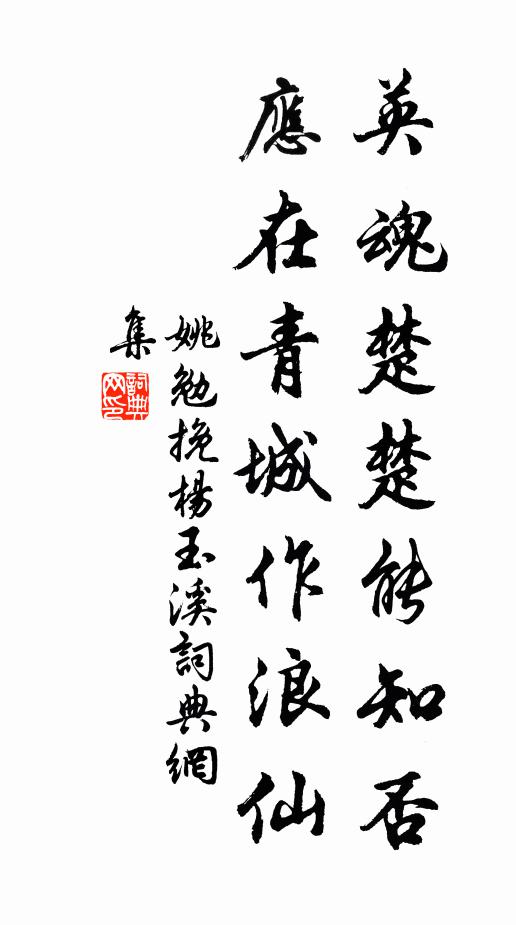 英魂楚楚能知否
應在青城作浪仙
姚勉挽楊玉溪詞典網
集
詞典网印